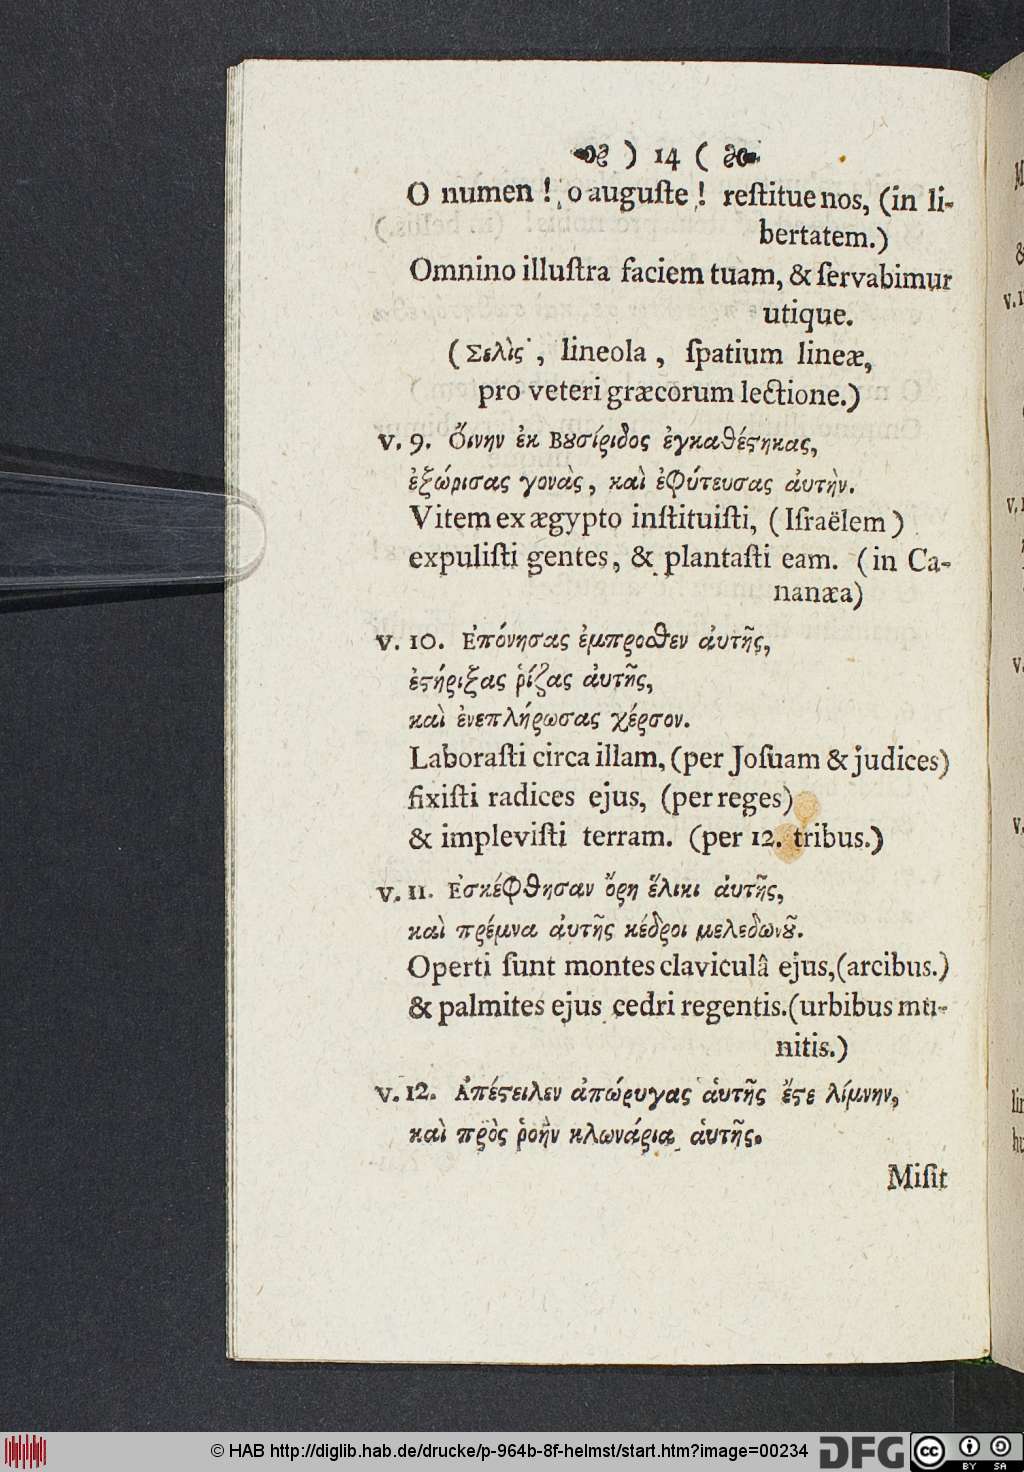 ) 14 (
O numen ! o auguſte ! reſtitue nos, (in li-
bertatem.)
Omnino illuſtra faciem tuam, & ſervabimur
utique.
(Σελὶς , lineola , ſpatium lineæ,
pro veteri græcorum lectione.)
v. 9. Ὄινην ἐκ Βȣσίριδος ἐγκαθέϛηκας,
ἐξώρισας γονὰς , καὶ ἐφύτευσας ἀυτὴν.
Vitem ex ægypto inſtituiſti, (Iſraëlem)
expuliſti gentes, & plantaſti eam. (in Ca-
nanæa)
v. 10. Ἐπόνησας ἐμπροσθεν ἀυτῆς,
ἐϛήριξας ῥίζας ἀυτῆς,
καὶ ἐνεπλήρωσας χέρσον.
Laboraſti circa illam, (per Joſuam & judices)
fixiſti radices ejus, (per reges)
& impleviſti terram. (per 12. tribus.)
v. 11. Ἐσκέφθησαν ὄρη ἕλικι ἀυτῆς,
καὶ πρέμνα ἀυτῆς κέδροι μελεδωνȣ͂.
Operti ſunt montes claviculâ ejus,(arcibus.)
& palmites ejus cedri regentis.(urbibus mu-
nitis.)
v. 12. Ἀπέϛειλεν ἀπώρυγας ἁυτῆς ἔϛε λίμνην,
καὶ πρὸς ῥοὴν κλωνάρια ἁυτῆς.
Miſit
© HAB http://diglib.hab.de/drucke/p-964b-8f-helmst/start.htm?image=00234
DFG
cc BY SA